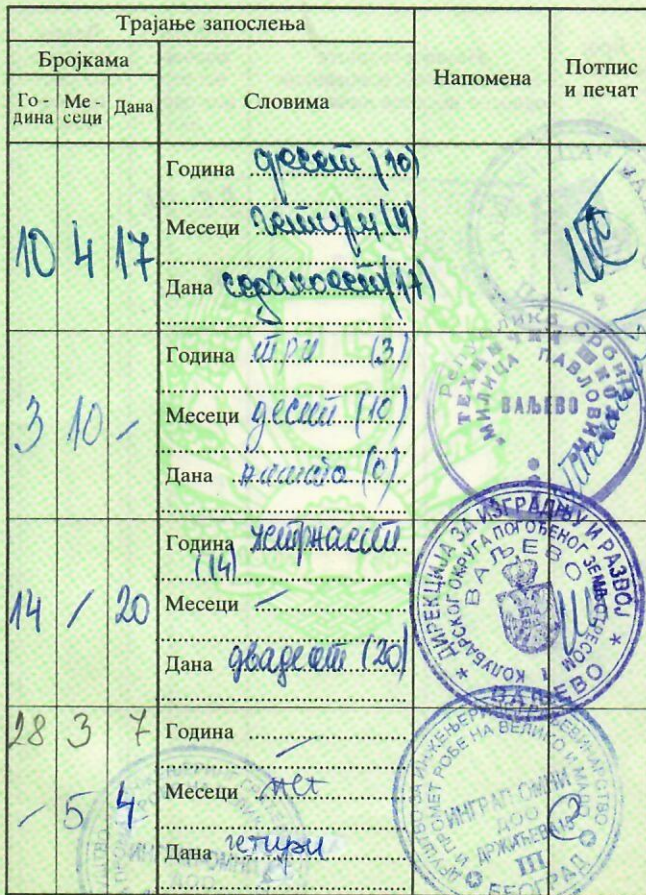 Трајање запослења
Бројкама
Напомена
Потпис
и печат
Го-
дина
Ме-
сеци
Дана
Словима
10 4 17
Година десет (10)
Месеци четири (4)
Дана седамнаест (17)
3 10 -
Година три (3)
Месеци десет (10)
Дана ништа (0)
Република Србија
ТЕХНИЧКА ШКОЛА
"МИЛИЦА ПАВЛОВИЋ"
ВАЉЕВО
14 / 20
Година четрнаест
(14)
Месеци /
Дана двадесет (20)
ДИРЕКЦИЈА ЗА ИЗГРАДЊУ И РАЗВОЈ
КОЛУБАРСКОГ ОКРУГА ПОГОЂЕНОГ ЗЕМЉОТРЕСОМ
ВАЉЕВО
ВАЉЕВО
28 3 7
- 5 4
Година -
Месеци пет
Дана четири
ДРУШТВО ЗА ИНЖЕЊЕРИНГ, ГРАЂЕВИНАРСТВО
И ПРОМЕТ РОБЕ НА ВЕЛИКО И МАЛО
ИНГРАП ОМНИ
ДОО
ДРЖИЋЕВА 15
III
БЕОГРАД